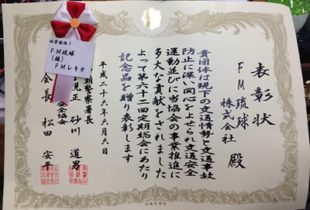 表彰状
FM琉球
株式会社 殿
貴団体は現下の交通情勢と交通事故
防止に深い関心をよせられ交通安全
運動並びに当協会の事業推進に
多大な貢献をされました
よって第六十二回定期総会にあたり
記念品を贈り表彰します
平成二十六年六月六日
警察署長
視正 砂川 道男
安全協会
会長 松田 安
FM琉球
(株)
FMレキオ